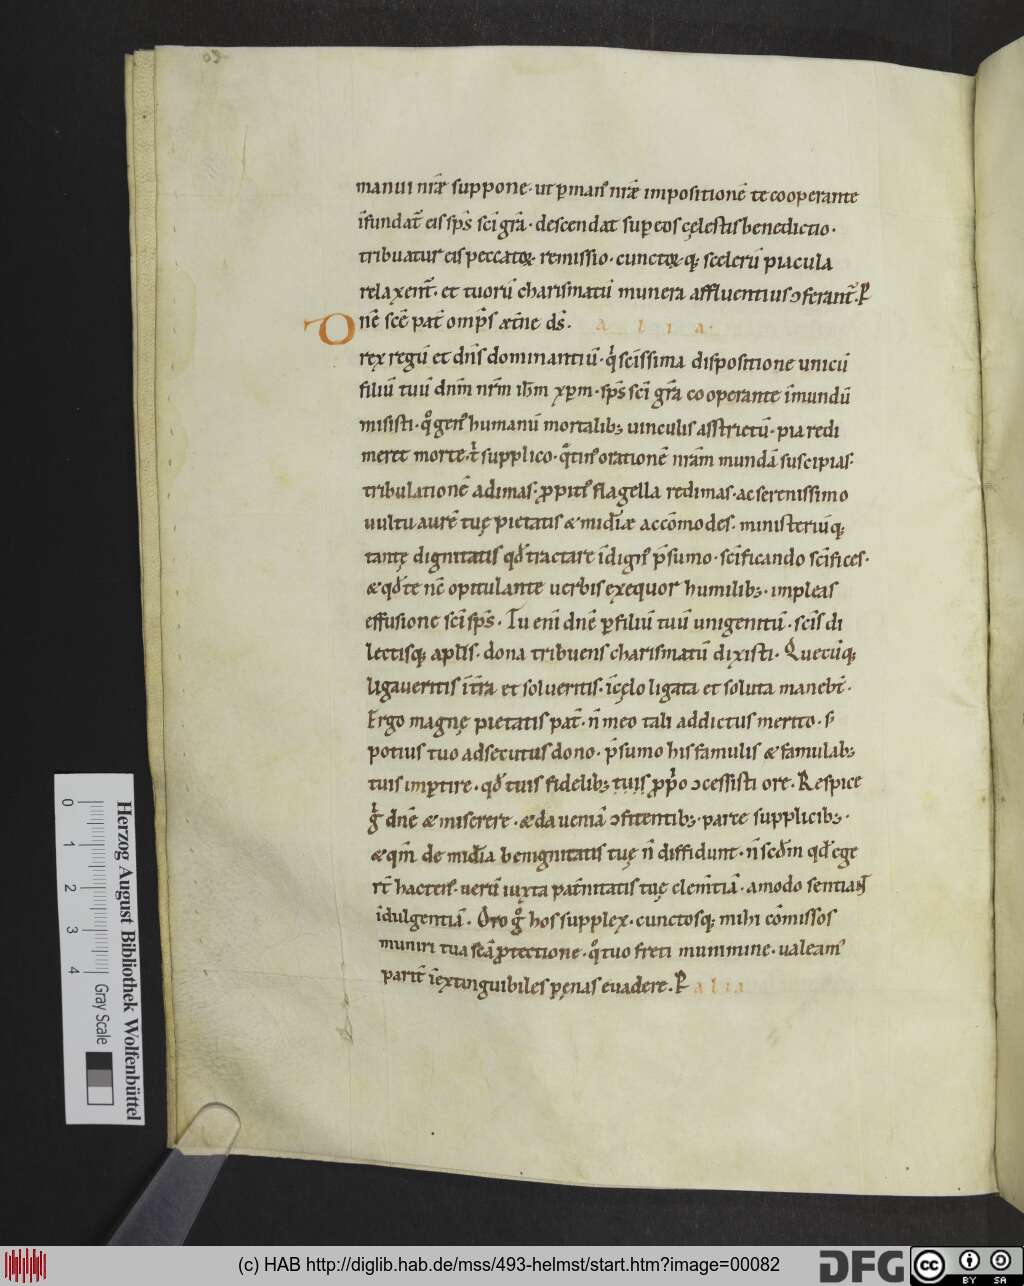 manui nr̄æ suppone· ut ꝑ manꝰ nr̄æ impositionē te cooperante
īfundat̄ eis sp̄s sc̄i gr̄a· descendat suꝑ eos cęlestis benedictio·
tribuatur eis peccatoꝝ remissio· cunctoꝝ·q; scelerū piacula
relaxent̄· et tuorū charismatū munera affluentius ↄferant̄· ℟
Dn̄e sc̄e pat̄ omp̄s æt̄ne d̄s. alia·
rex regū et dn̄s dominantiū· q̇ sc̄issima dispositione unicū
filiū tuū dn̄m nr̄m ih̄m xp̄m· sp̄s sc̄i gr̄a cooperante ī mundū
misisti· q̊ genꝰ humanū mortalib; uinculis astrictū· pia redi
meret morte· t̄ supplico· q̄tinꝰ orationē nr̄am mundā suscipias·
tribulationē adimas· ꝓpitꝰ flagella redimas· ac serenissimo
uultu aurē tuę pietatis & mid̄iæ accōmodes· ministeriūq;
tantę dignitatis qd̄ tractare īdignꝰ p̄sumo· sc̄ificando sc̄ifices·
& qd̄ te nc̄ opitulante uerbis exequor humilib;· impleas
effusione sc̄i sp̄s· Tu eni dn̄e ꝑ filiū tuū unigenitū· sc̄is di
lectisq; ap̄lis· dona tribuens charismatū dixisti· Quecūq;
ligaveritis ī t̄ra et solveritis· ī cęlo ligata et soluta manebt̄·
Ergo magnę pietatis pat̄· n̄ meo tali addictus merito· s̄
potius tuo adsecutus dono· p̄sumo his famulis & famulab;
tuis imꝑtire· qd̄ tuis fidelib; tuis ꝓp̄o ↄcessisti ore· Respice
g̊ dn̄e & miserere· & da ueniā ↄfitentib;· parce supplicib;·
& qm̄ de mid̄ia benignitatis tuę n̄ diffidunt· n̄ sc̄dm qd̄ ege
rt̄ hactenꝰ· uerū iuxta pat̄nitatis tuę clem̄tiā· amodo sentiant
īdulgentiā· Oro g̊ hos supplex· cunctosq; mihi cōmissos
muniri tua sc̄a ꝓtectione· q̊ tuo freti munimine· ualeamꝰ
parit̄ īextinguibiles pęnas evadere· ℟ alia
0
1
2
3
4
Herzog August Bibliothek Wolfenbüttel
Gray Scale
(c) HAB http://diglib.hab.de/mss/493-helmst/start.htm?image=00082
DFG
cc
BY SA